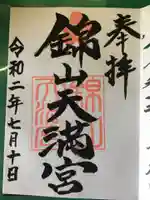 奉拝
錦山天満宮
令和二年七月十日